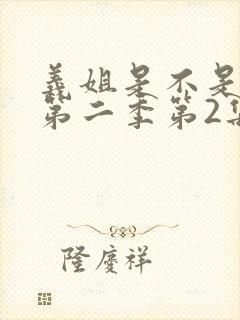 義姐是不是
第二季第2集
隆慶祥